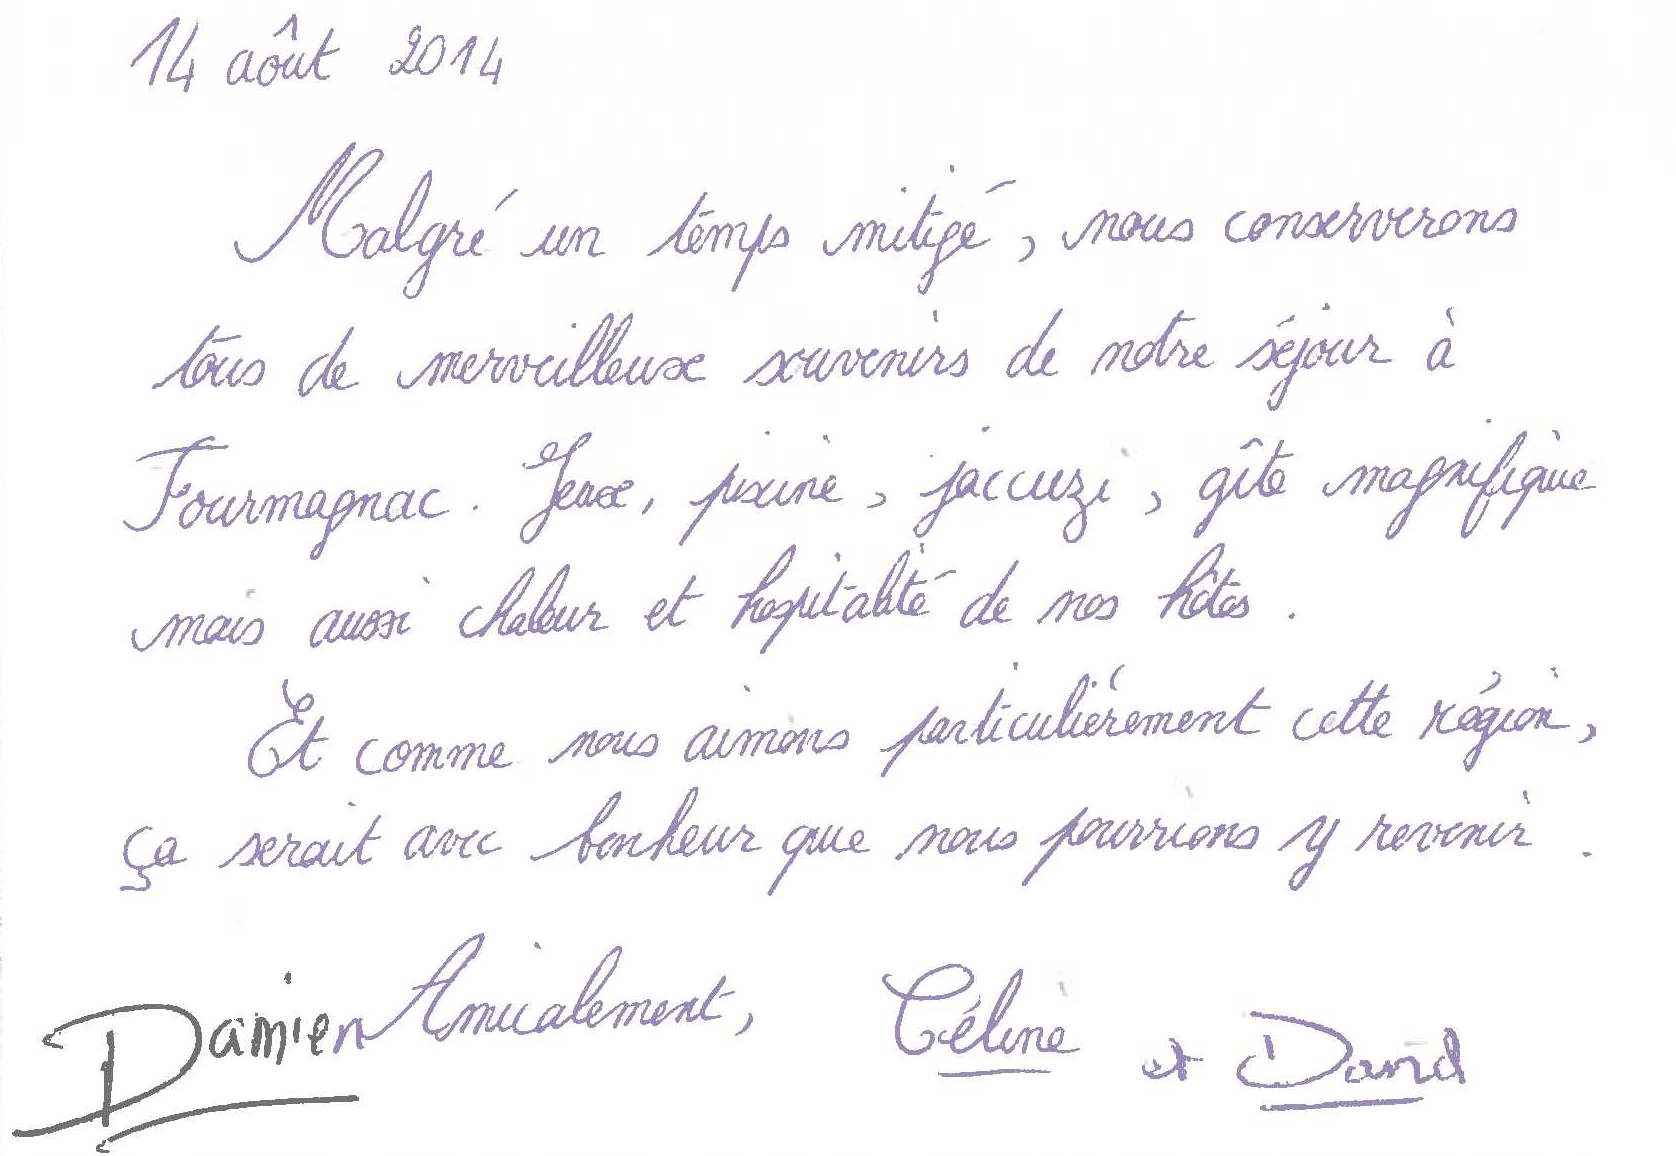 14 août 2014
Malgré un temps mitigé, nous conserverons
tous de merveilleux souvenirs de notre séjour à
Fourmagnac. Jeux, piscine, jaccuzi, gîte magnifique
mais aussi chaleur et hospitalité de nos hôtes.
Et comme nous aimons particulièrement cette région,
ça serait avec bonheur que nous pourrions y revenir.
Amicalement, Céline et David
Damien